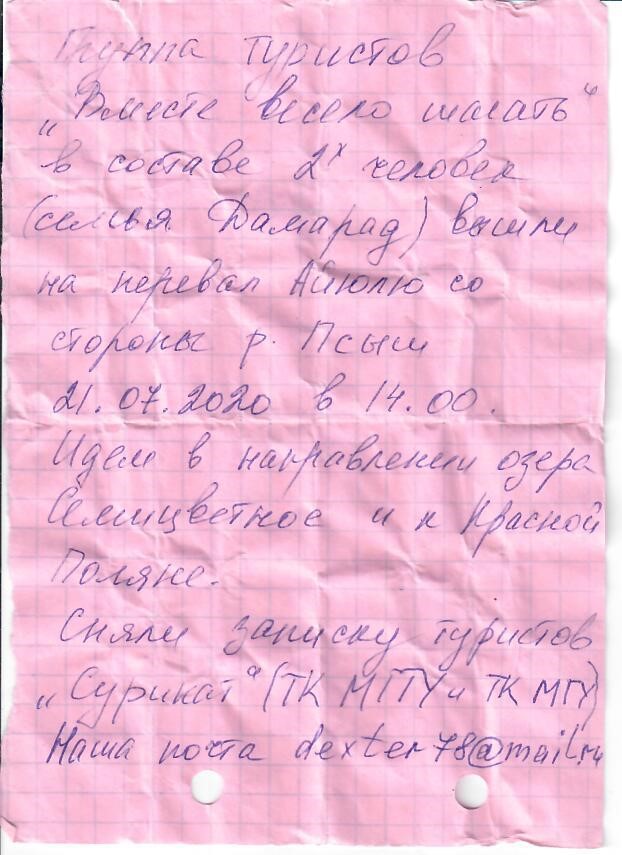 Группа туристов
„Вместе весело шагать“
в составе 2х человек
(семья Дамарад) вышли
на перевал Айюлю со
стороны р. Псыш
21.07.2020 в 14.00.
Идем в направлении озера
Семицветное и к Красной
Поляне.
Сняли записку туристов
„Сурикат“ (ТК МГТУ и ТК МГУ)
Наша почта dexter78@mail.ru